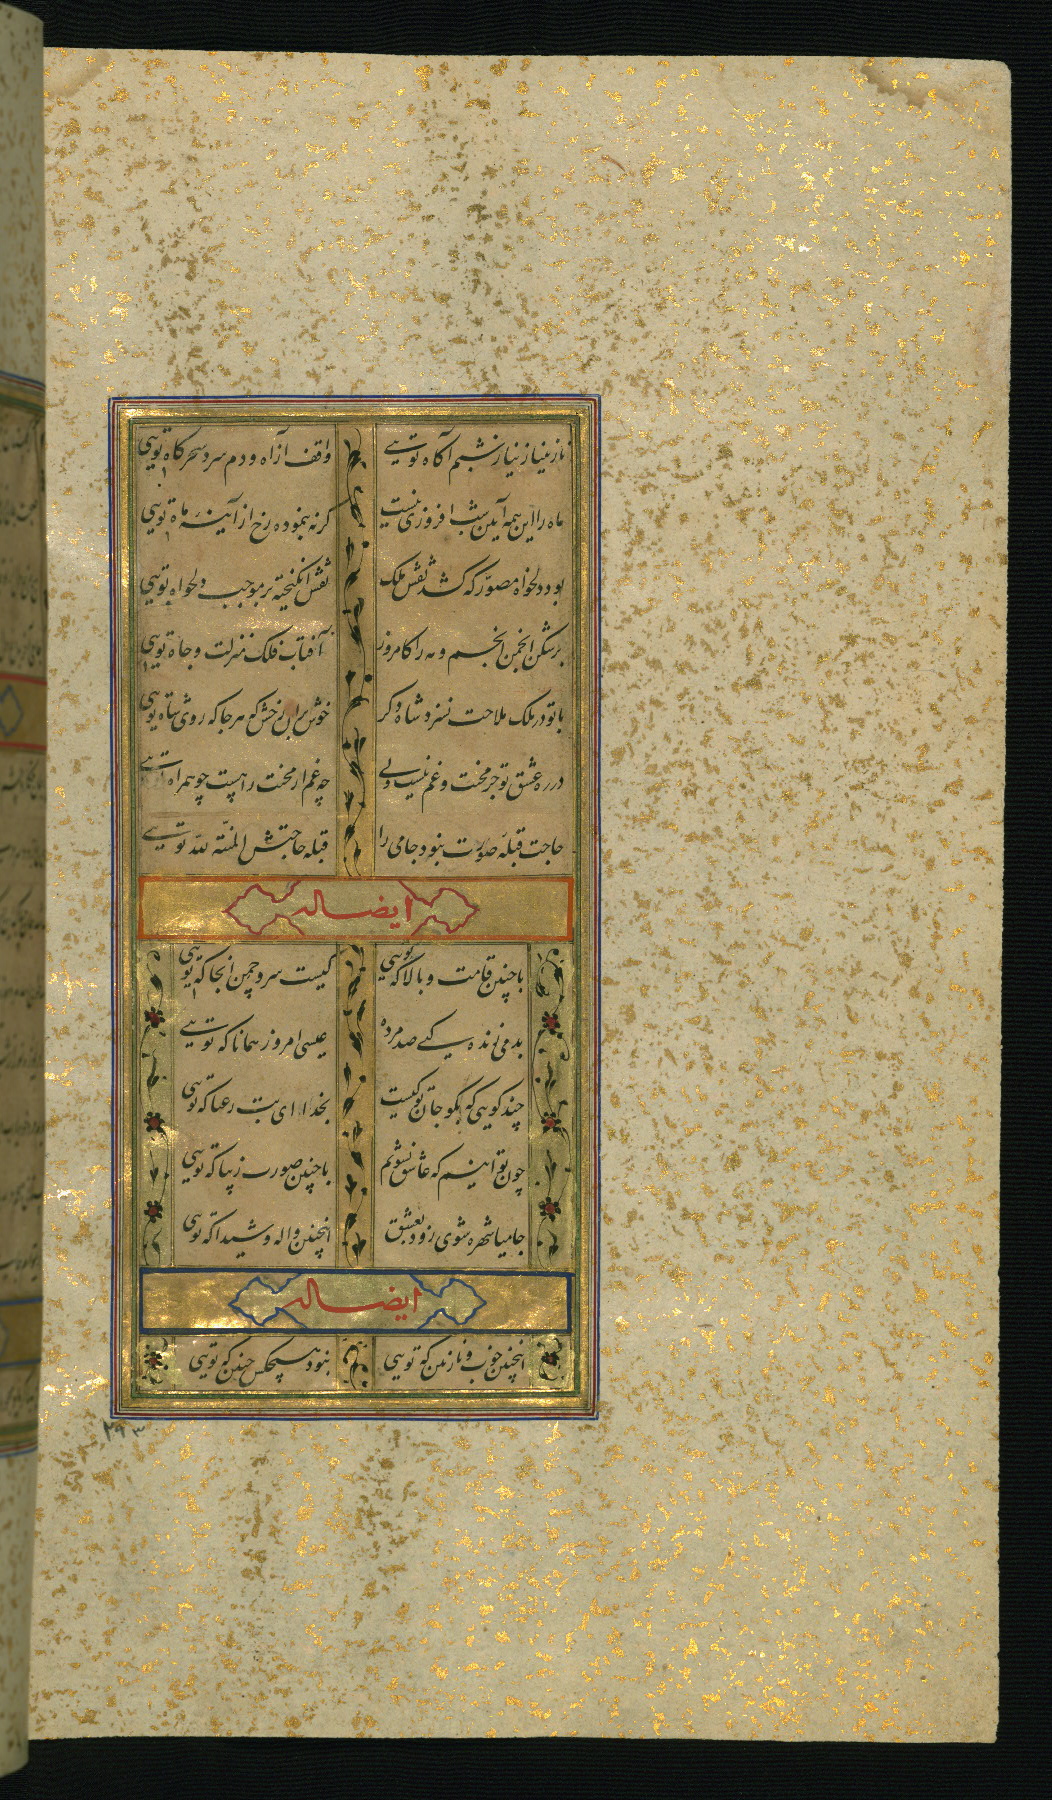 نازنینا ز نیاز شبم آگاه تویی
واقف از آه و دم سرد سحرگاه تویی
ماه را این همه آیین شب افروزی نیست
گر نه بنموده رخ از آینهٔ ماه تویی
بود دلخواه مصور که کشد نقش ملک
نقش انگیخته بر موجب دلخواه تویی
برشکن انجمن انجم و مه را کامروز
آفتاب فلک منزلت و جاه تویی
با تو در ملک ملاحت نسزد شاه دگر
خوش بران رخش که هر جا که روی شاه تویی
در ره عشق تو جز محنت و غم نیست ولی
چه غم از محنت راهست چو همراه تویی
حاجت قبله صورت نبود جامی را
قبله حاجتش المنة لله تویی
ایضا له
با چنین قامت و بالا که تویی
کیست سرو چمن آنجا که تویی
بدمی زنده کنی صد مرده
عیسی امروز همانا که تویی
چند گویی که بگو جان تو کیست
بخدا ای بت رعنا که تویی
چون توانیم که عاشق نشویم
با چنین صورت زیبا که تویی
جامیا شهره شوی زود بعشق
اینچنین واله و شیدا که تویی
ایضا له
اینچنین خوب و نازنین که تویی
نبود هیچکس چنین که تویی
۲۹۳